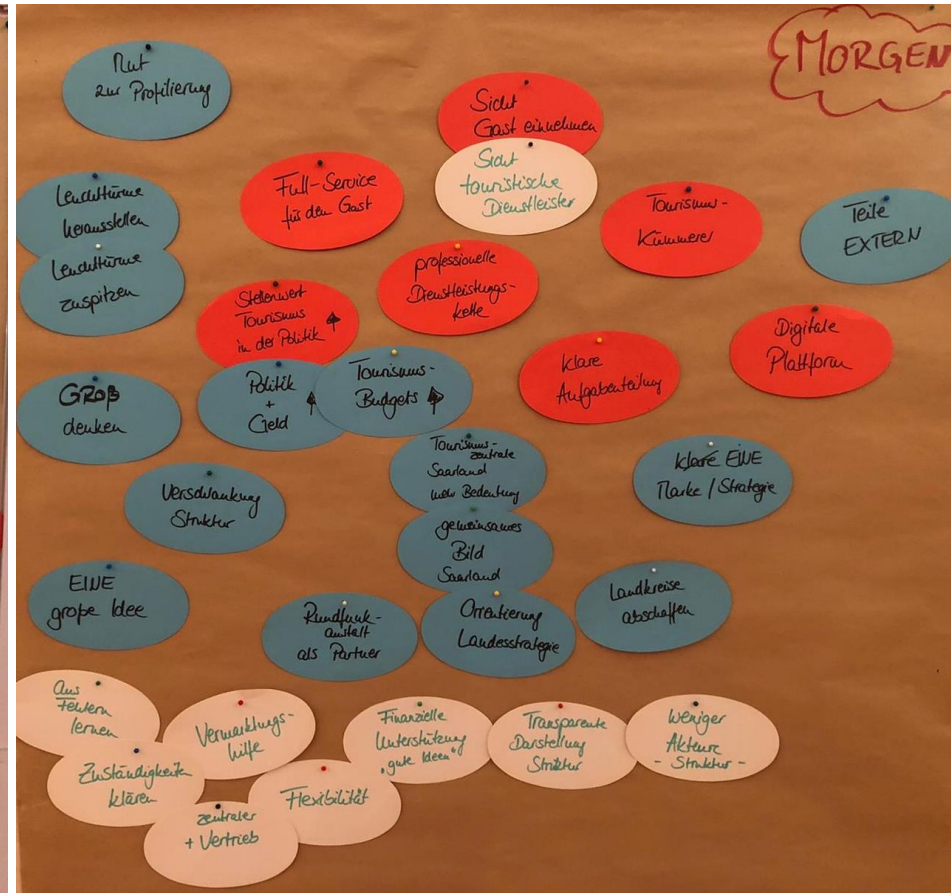 MORGEN
Mut
zur Profilierung
Sicht
Gast einnehmen
Sicht
touristische
Dienstleister
Full-Service
für den Gast
Leuchttürme
herausstellen
Leuchttürme
zuspitzen
Tourismus-
Kümmerer
Teile
EXTERN
professionelle
Dienstleistungs-
kette
Stellenwert
Tourismus
in der Politik ↑
Politik
+
Geld ↑
Tourismus-
Budgets ↑
Klare
Aufgabenteilung
Digitale
Plattform
GROß
denken
Tourismus-
zentrale
Saarland
mehr Bedeutung
klare EINE
Marke / Strategie
Verschränkung
Struktur
gemeinsames
Bild
Saarland
EINE
große Idee
Rundfunk-
anstalt
als Partner
Orientierung
Landesstrategie
Landkreise
abschaffen
Aus
Fehlern
lernen
Vermarktungs-
hilfe
Finanzielle
Unterstützung
"gute Ideen"
Transparente
Darstellung
Struktur
Weniger
Akteure
- Struktur -
Zuständigkeiten
klären
Flexibilität
zentraler
+ Vertrieb